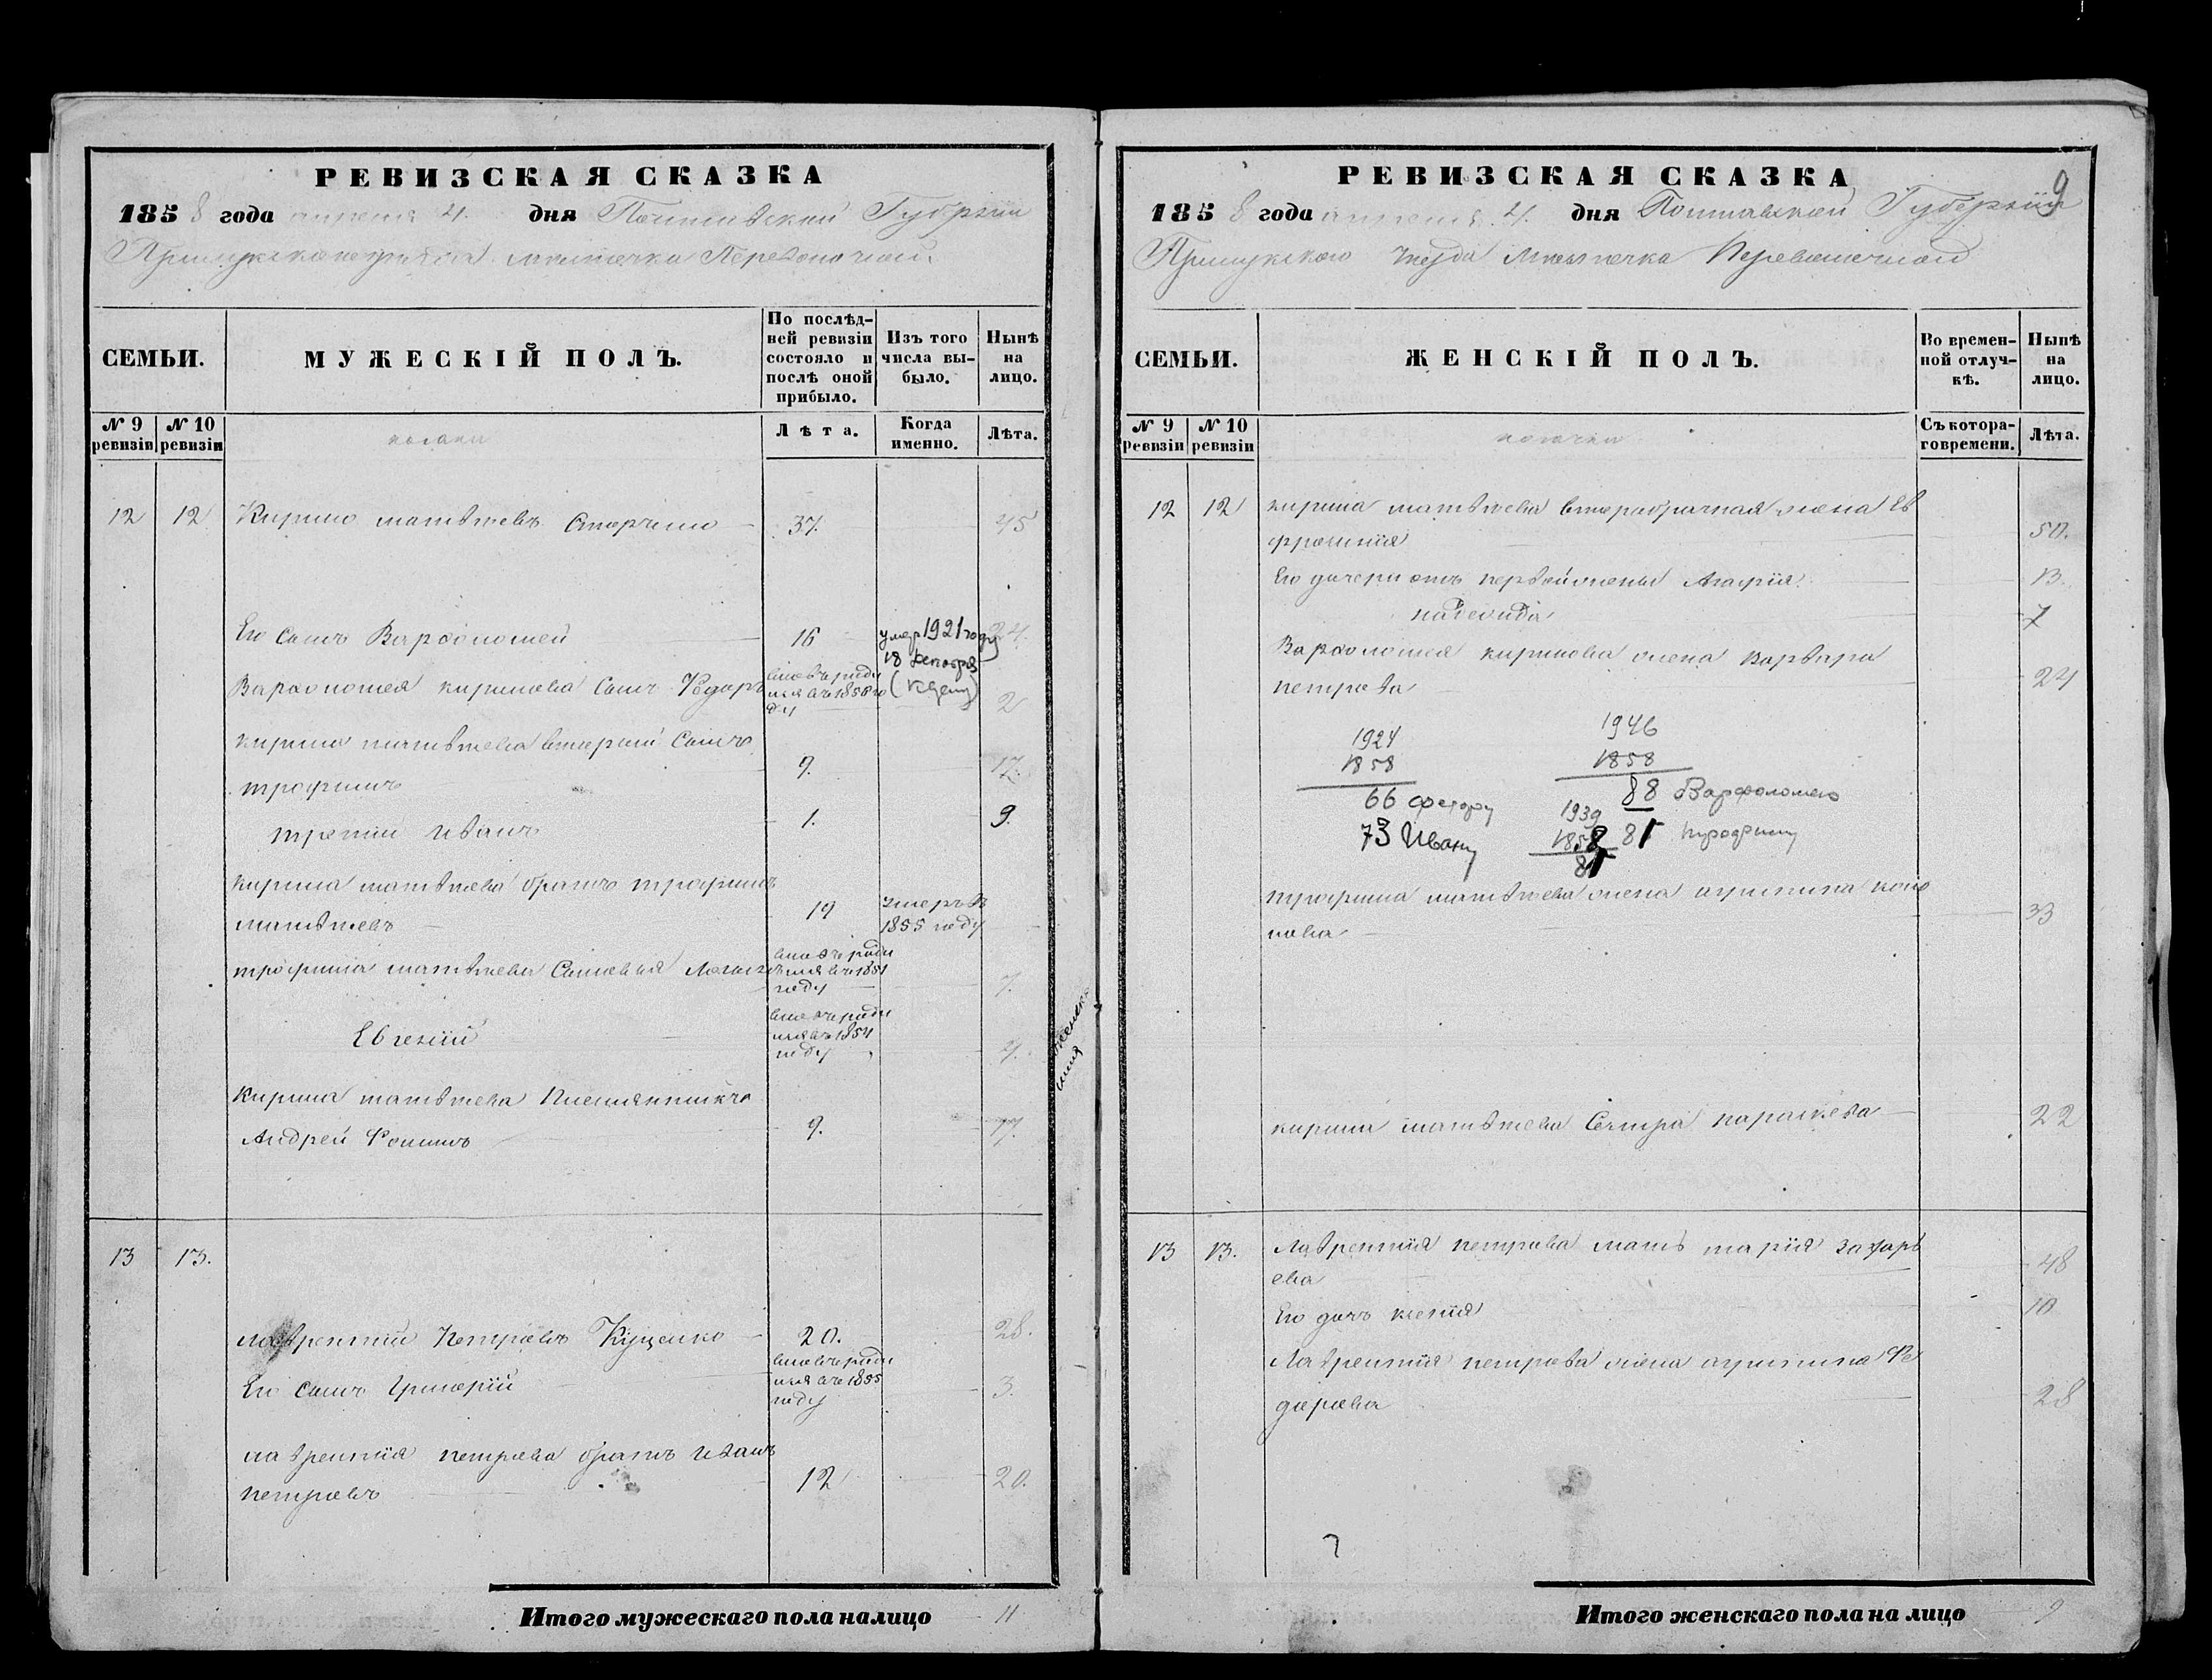 РЕВИЗСКАЯ СКАЗКА
1858 года апреля 4. дня Полтавской Губернии
Прилукского уезда местечка Переволочной.
СЕМЬИ.
МУЖЕСКІЙ ПОЛЪ.
По послѣд-
ней ревизіи
состояло и
послѣ оной
прибыло.
Изъ того
числа вы-
было.
Нынѣ
на
лицо.
№ 9
ревизіи
№ 10
ревизіи
козаки
Лѣта.
Когда
именно.
Лѣта.
12 12 Кирило матвѣевъ 37. 45
Его сынъ Варфоломей 16 умер 1921 году 24.
18 декабря
Варфоломея кирилова сынъ Федоръ вновь роди
лся въ 1856 го
ду 2
кирила матвѣева вторый сынъ
трофимъ 9. 17.
третій иванъ 1. 9.
кирила матвѣева братъ трофимъ
матвѣевъ 19 умеръ въ
1855 году
трофима матвѣева сыновья вновь роди
лся въ 1851
году 7.
Евгеній вновь роди
лся въ 1854
году 4.
кирила матвѣева племянникъ
Андрей Фоминъ 9. 17.
13 13.
лаврентій Петровъ Куценко 20. 28.
Его сынъ Григорій вновь роди
лся въ 1855
году 3.
лаврентія петрова братъ иванъ
петровъ 12 20.
Итого мужескаго пола на лицо 11
РЕВИЗСКАЯ СКАЗКА 9
1858 года апреля 4. дня Полтавской Губерніи
Прилукского уезда местечка Переволочной
СЕМЬИ.
ЖЕНСКІЙ ПОЛЪ.
Во времен-
ной отлуч-
кѣ.
Нынѣ
на
лицо.
№ 9
ревизіи
№ 10
ревизіи
козачки
Съ котора-
го времени.
Лѣта.
12 12 кирила матвѣева второбрачная жена Ев
фросинія 50.
Его дочери отъ первой жены Агафія 13.
7
Варфоломея кирилова жена Варвара
петрова 24
1924 1946
1858 1858
66 Федору 88 Варфоломею
1939
73 Ивану 1858 81 трофиму
81
трофима матвѣева жена агрипина коно
нова 33
кирила матвѣева Сестра параскева 22
13 13. Лаврентія петрова мать марія захарь
ева 48
Его дочь ксенія 10
Лаврентія петрова жена агрипина Фе
дорова 28
Итого женскаго пола на лицо 9